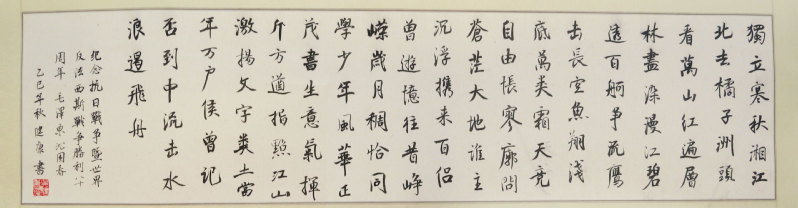 獨立寒秋湘江
北去橘子洲頭
看萬山紅遍層
林盡染漫江碧
透百舸爭流鷹
击長空魚翔淺
底萬類霜天競
自由悵寥廓問
蒼茫大地誰主
沉浮携來百侣
曾遊憶往昔崢
嶸歲月稠恰同
學少年風華正
茂書生意氣揮
斥方遒指點江山
激揚文字粪土當
年万户侯曾記
否到中流击水
浪遏飛舟
纪念抗日戰争暨世界
反法西斯戰争勝利八十
周年 毛澤東沁园春
乙巳年秋 建康書